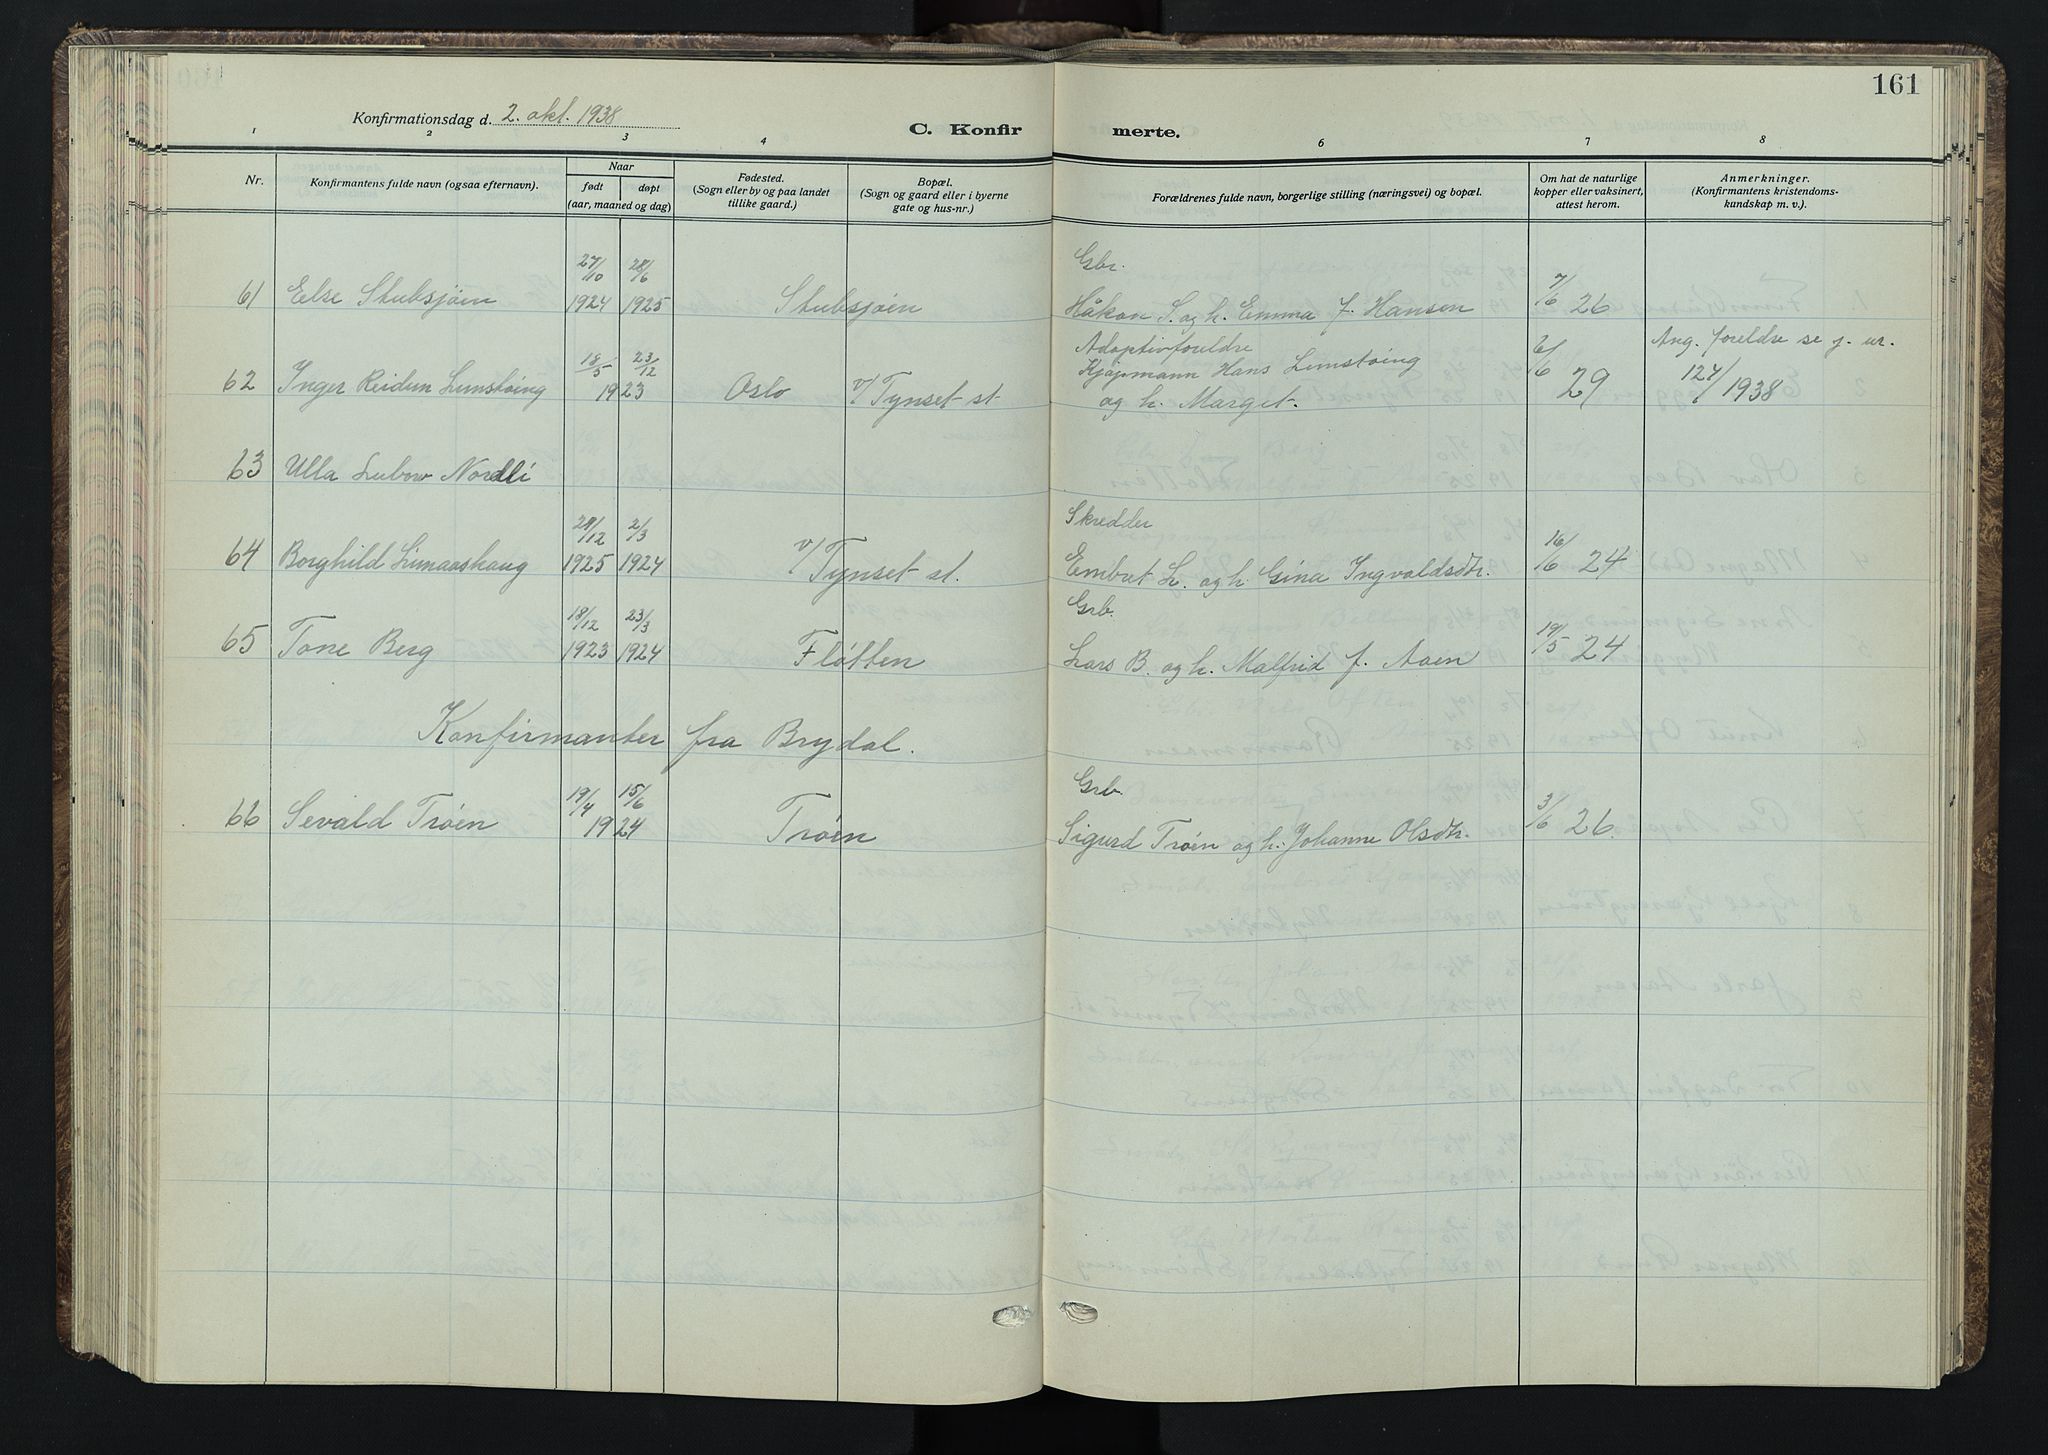 161
Konfirmationsdag d. 2. okt. 1938
C. Konfir merte.
1 2 3 4 5 6 7 8
Nr.
Konfirmantens fulde navn (ogsaa efternavn).
Naar
født døpt
(aar, maaned og dag)
Fødested.
(Sogn eller by og paa landet
tillike gaard.)
Bopæl.
(Sogn og gaard eller i byerne
gate og hus-nr.)
Forældrenes fulde navn, borgerlige stilling (næringsvei) og bopæl.
Om hat de naturlige
kopper eller vaksinert,
attest herom.
Anmerkninger.
(Konfirmantens kristendoms-
kundskap m. v.).
27/10 28/6 Gbr. 7/6
61 Else Stubsjøen 1924 1925 Stubsjøen Håkon S. og h. Emma f. Hansen 26
18/5 23/12 Adoptivforeldre 6/6 Ang. foreldre se j. nr.
Kjøpmann Hans
62 Inger Reidun 1923 Oslo v/Tynset st. og h. Marget. 29 124/1938
63 Ulla Lubow Nordli
29/12 2/3 Skredder 16/6
64 Borghild 1925 1924 v/Tynset st. Embret L. og h. Gina Ingvaldsdtr. 24
18/12 23/3 Grb. 19/5
65 Tone Berg 1923 1924 Fløtten Lars B. og h. Malfrid f. Aaen 24
Konfirmanter fra Brydal.
19/4 15/6 Grb. 3/6
66 Sevald Trøen 1924 Trøen Sigurd Trøen og h. Johanne Olsdtr. 26.